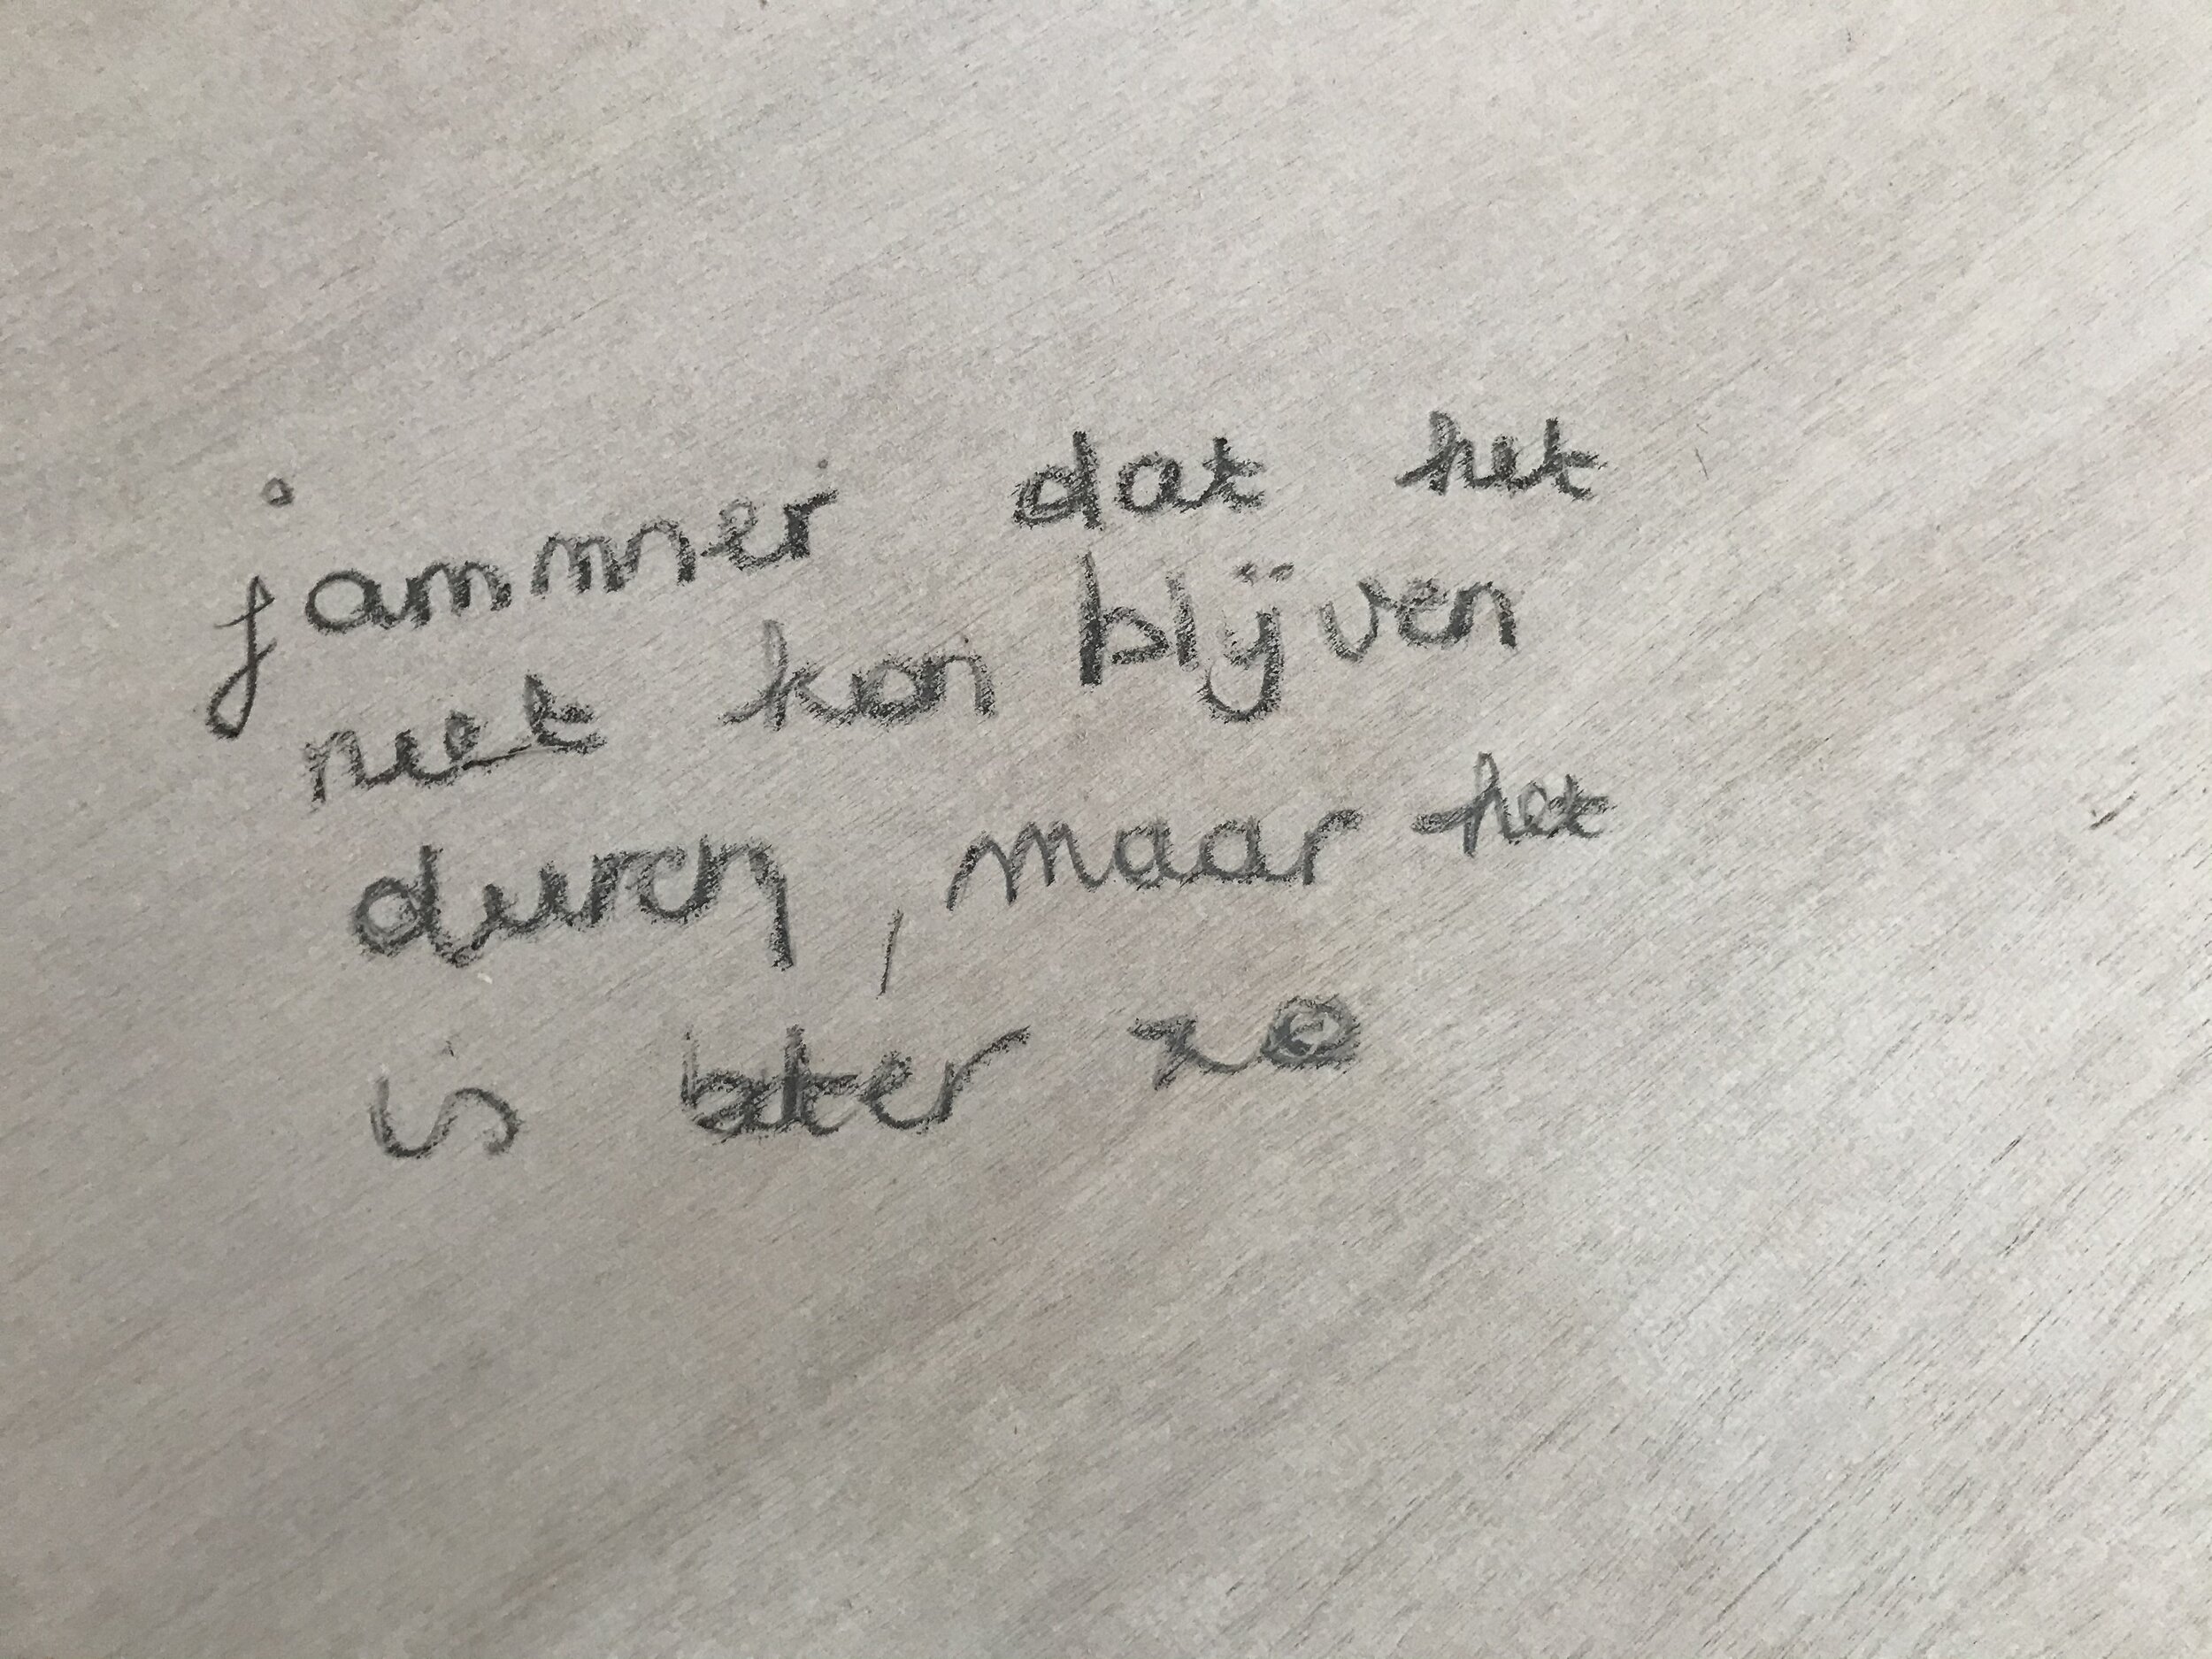 jammer dat het
niet kon blijven
duren, maar het
is beter zo